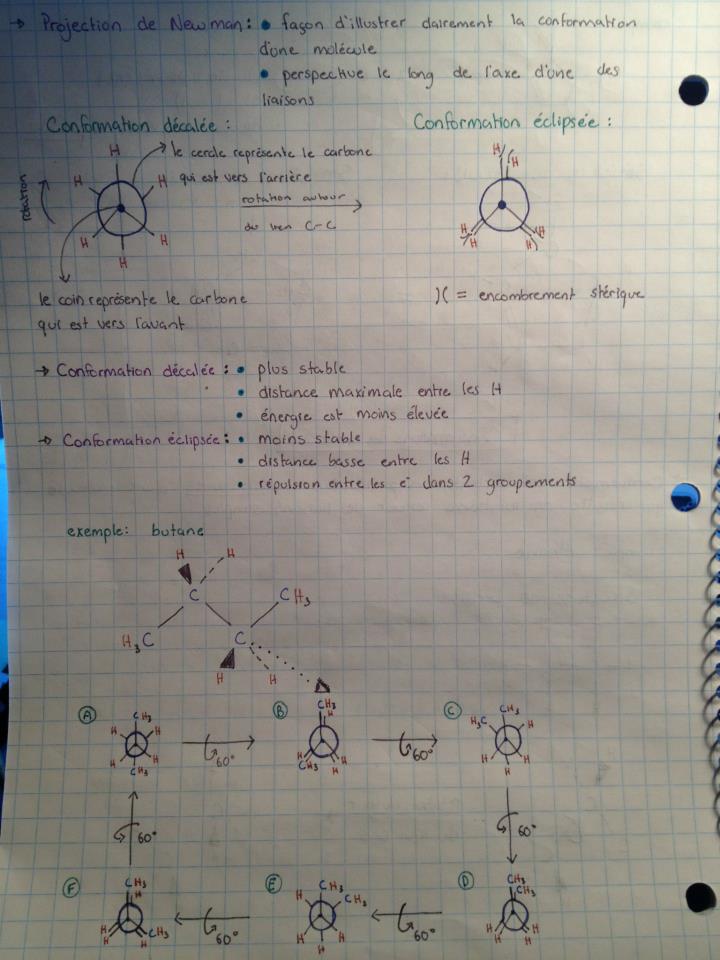 → Projection de Newman: • façon d'illustrer clairement la conformation
d'une molécule
• perspective le long de l'axe d'une des
liaisons
Conformation décalée :
Conformation éclipsée :
H
H
H
H
H
H
rotation
le cercle représente le carbone
qui est vers l'arrière
rotation autour
du lien C-C
H
H
H
H
H
H
le coin représente le carbone
qui est vers l'avant
)( = encombrement stérique
→ Conformation décalée : • plus stable
• distance maximale entre les H
• énergie est moins élevée
→ Conformation éclipsée : • moins stable
• distance basse entre les H
• répulsion entre les e⁻ dans 2 groupements
exemple: butane
H H
C CH₃
H₃C C
H H
A
CH₃
H H
H H
CH₃
60°
B
CH₃
H
H H
CH₃ H
60°
C
CH₃
H₃C H
H H
H
60°
D
CH₃
CH₃
H H
H H
60°
E
CH₃
H CH₃
H H
H
60°
F
CH₃
H
H CH₃
H H
60°